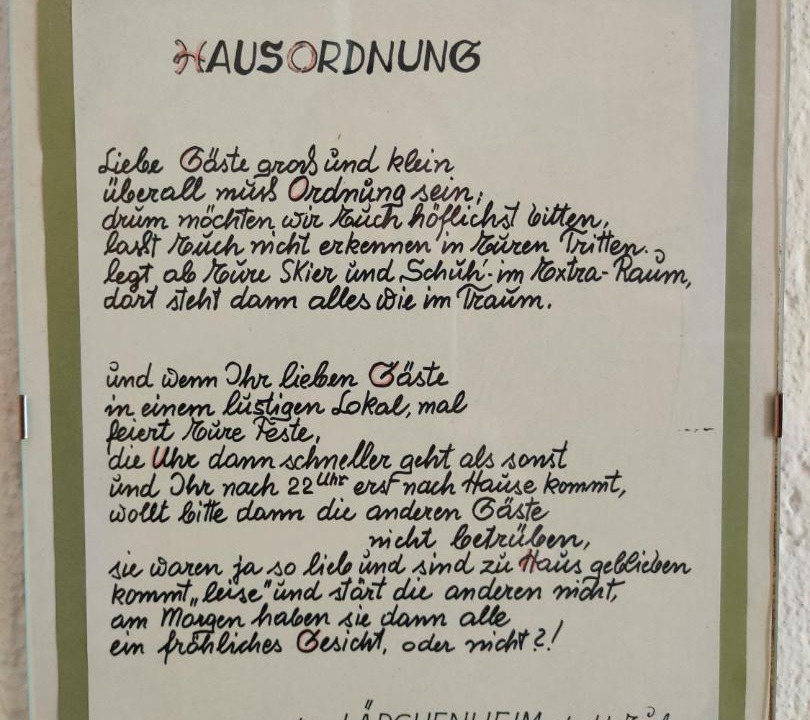 HAUSORDNUNG
Liebe Gäste groß und klein
überall muß Ordnung sein,
drum möchten wir Euch höflichst bitten,
laßt Euch nicht erkennen in Euren Tritten.
legt ab Eure Skier und Schuh' im Extra-Raum,
dort steht dann alles wie im Traum.
und wenn Ihr lieben Gäste
in einem lustigen Lokal, mal
feiert Eure Feste,
die Uhr dann schneller geht als sonst
und Ihr nach 22 Uhr erst nach Hause kommt,
wollt bitte dann die anderen Gäste
nicht betrüben,
sie waren ja so lieb und sind zu Haus geblieben
kommt „leise" und stört die anderen nicht,
am Morgen haben sie dann alle
ein fröhliches Gesicht, oder nicht?!
LÄRCHENHEIM